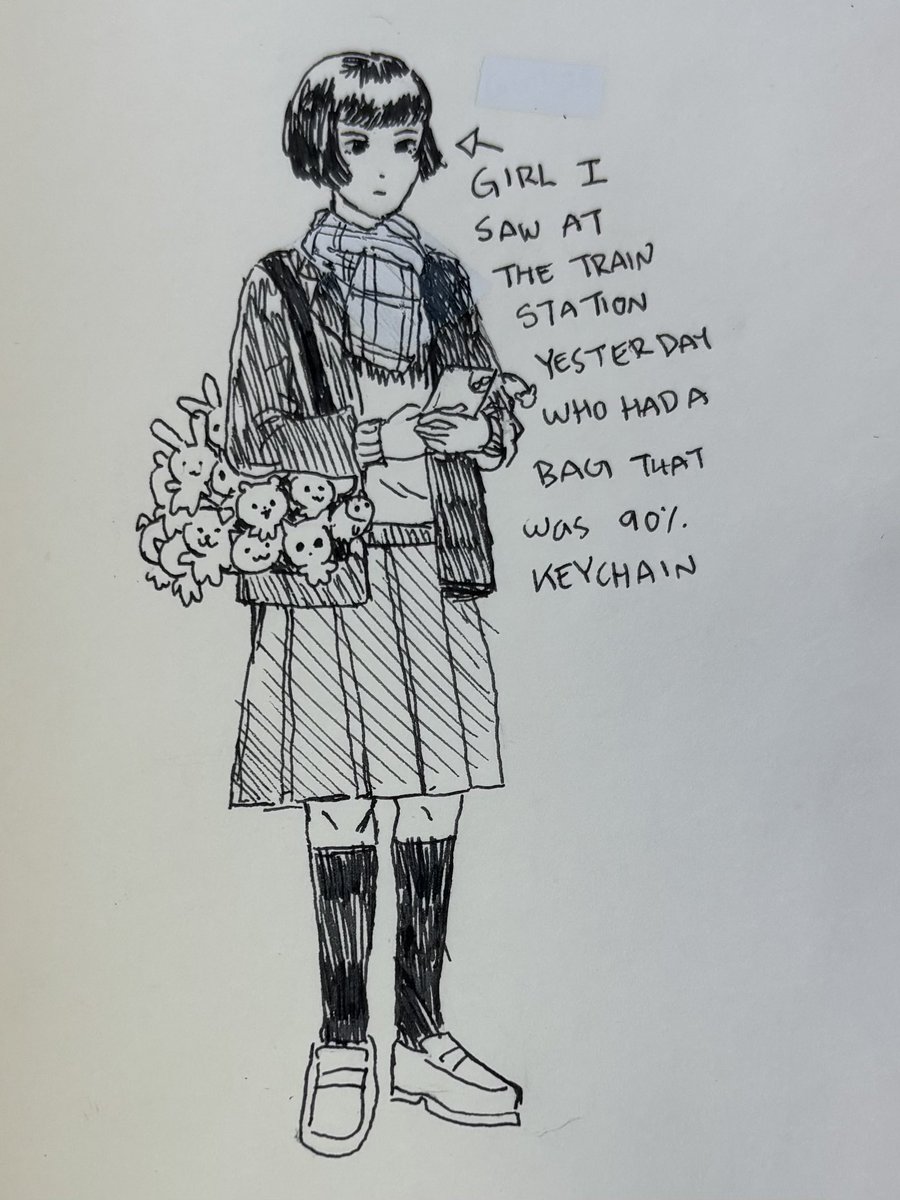 GIRL I
SAW AT
THE TRAIN
STATION
YESTERDAY
WHO HAD A
BAG THAT
was 90%
KEYCHAIN